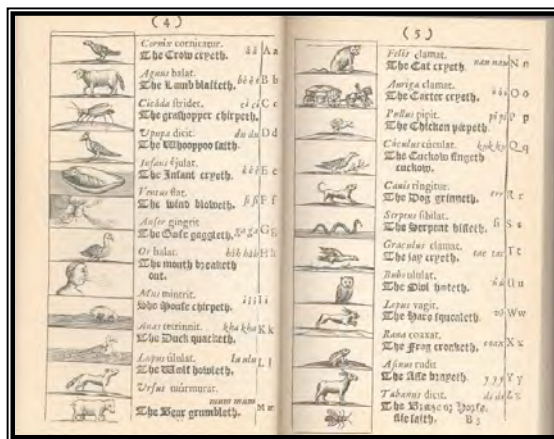 ( 4 )
Cornix cornicatur.
The Crow cryeth. á á A a
Agnus balat.
The Lamb blaiteth. b é é é B b
Cicàda stridet.
The grashopper chirpeth. ci ci C c
Upupa dicit. du du D d
The Whooppoo saith.
Infans éjulat. é é é E e
The Infant cryeth.
Ventus flat. fi fi F f
The wind bloweth.
Anser gingrit. ga ga G g
The Goose gaggleth.
Os halat. háh háh H h
The mouth breatheth
out.
Mus mintrit. í í í I i
The Mouse chirpeth.
Anas tetrinnit. kha kha K k
The Duck quacketh.
Lupus úlulat. lu ulu L l
The Wolf howleth.
Ursus múrmurat.
mum mum M m
The Bear grumbleth.
( 5 )
Felis clamat. nau nau N n
The Cat cryeth.
Auriga clamat. ó ó ó O o
The Carter cryeth.
Pullus pipit. pi pi P p
The Chicken pipeth.
Cúculus cúculat. kuk ku Q q
The Cuckow singeth
cuckow.
Canis ringitur. err R r
The Dog grinneth.
Serpens sibilat. si S s
The Serpent hisseth.
Graculus clamat. tac tac T t
The Jay cryeth.
Bubo ululat. ú ú U u
The Owl hooteth.
Lepus vagit. W w
The Hare squeaketh.
Rana coaxat. coax X x
The Frog croaketh.
Asinus rudit. y y y Y y
The Asse brayeth.
Tabanus dicit. ds ds Z z
The Breeze or Horse-
flie saith. B 3